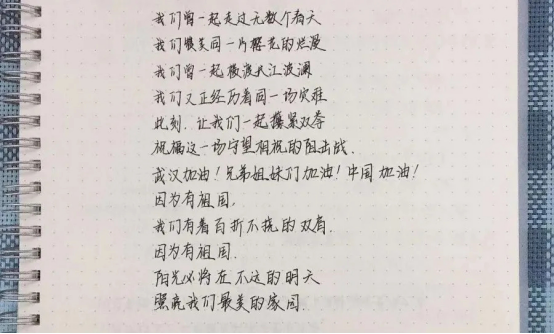 我们曾一起走过无数个春天
我们赞美同一片樱花的烂漫
我们曾一起横渡大江波澜
我们又正经历着同一场灾难
此刻,让我们一起攥紧双拳
祝福这一场守望相祝的阻击战.
武汉加油!兄弟姐妹们加油!中国加油!
因为有祖国.
我们有着百折不挠的双肩.
因为有祖国.
阳光必将在不远的明天
照亮我们最美的家园.